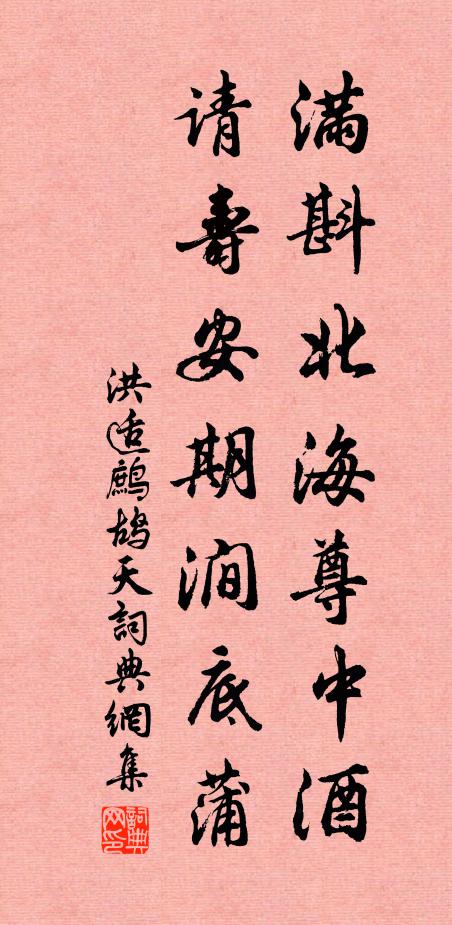 满斟北海尊中酒
请寿安期涧底蒲
洪适鹧鸪天词典網集
詞典网印